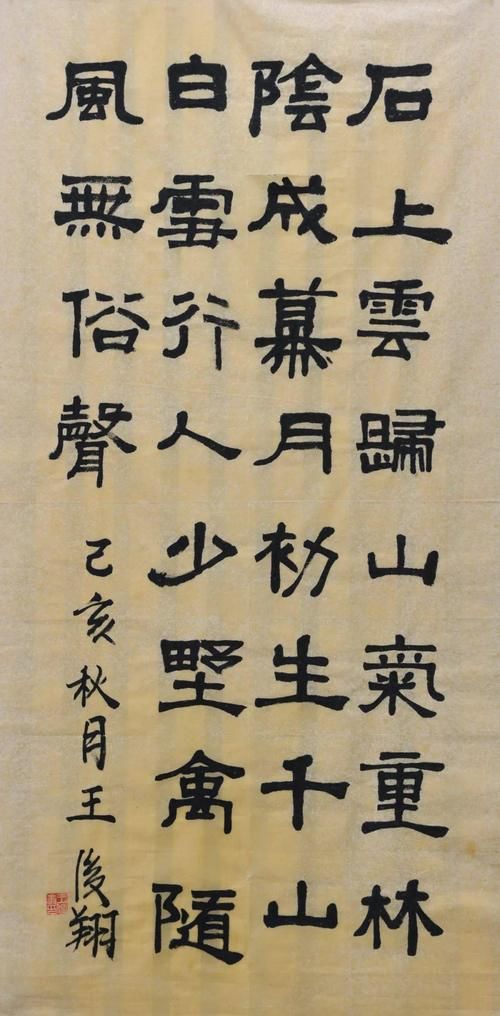 石上雲歸山氣重林
陰成幕月初生千山
白雪行人少野禽隨
風無俗聲
己亥秋月王俊翔